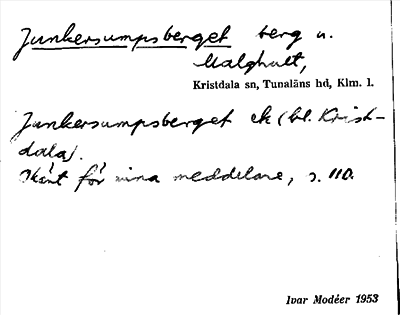 Junkersumpsberget berg u.
Malghult,
Kristdala sn, Tunaläns hd, Klm. l.
Junkersumpsberget ek (bl. Krist-
dala).
Okänt för mina meddelare, s. 110.
Ivar Modéer 1953